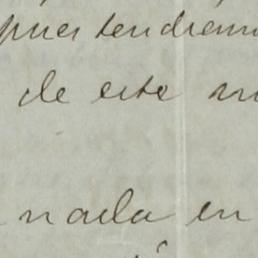 pues tendriam
de este m
nada en